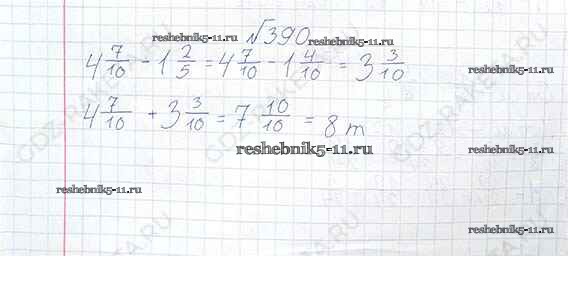 №390
4 7/10 - 1 2/5 = 4 7/10 - 1 4/10 = 3 3/10
4 7/10 + 3 3/10 = 7 10/10 = 8 т
reshebnik5-11.ru
reshebnik5-11.ru
reshebnik5-11.ru
reshebnik5-11.ru
reshebnik5-11.ru
reshebnik5-11.ru
reshebnik5-11.ru